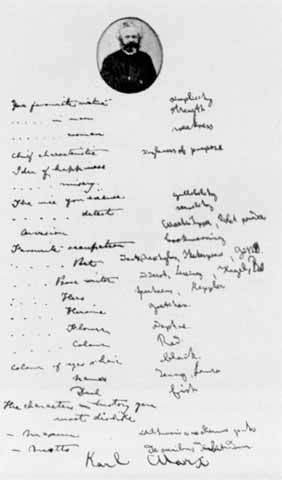 Your favourite virtue simplicity
. . . . - man strength
. . . . woman weakness
Chief characteristic singleness of purpose
Idea of happiness
. . . . misery
The vice you excuse gullibility
. . . . detest servility
Aversion Tupper, violet powder
Favourite occupation bookworming
. . . . Poet Aeschylus, Shakespeare, Göthe
. . . . Prose writer Diderot, Lessing, Hegel,
. . . . Hero Spartacus, Keppler
. . . . Heroine Gretchen
. . . . Flower Daphne
. . . . Colour Red
Colour of eyes & hair black
. . . . Names Jenny, Laura
. . . . Dish fish
The characters in history you
most dislike
- Maxim alienum puto
- Motto De omnibus dubitandum
Karl Marx